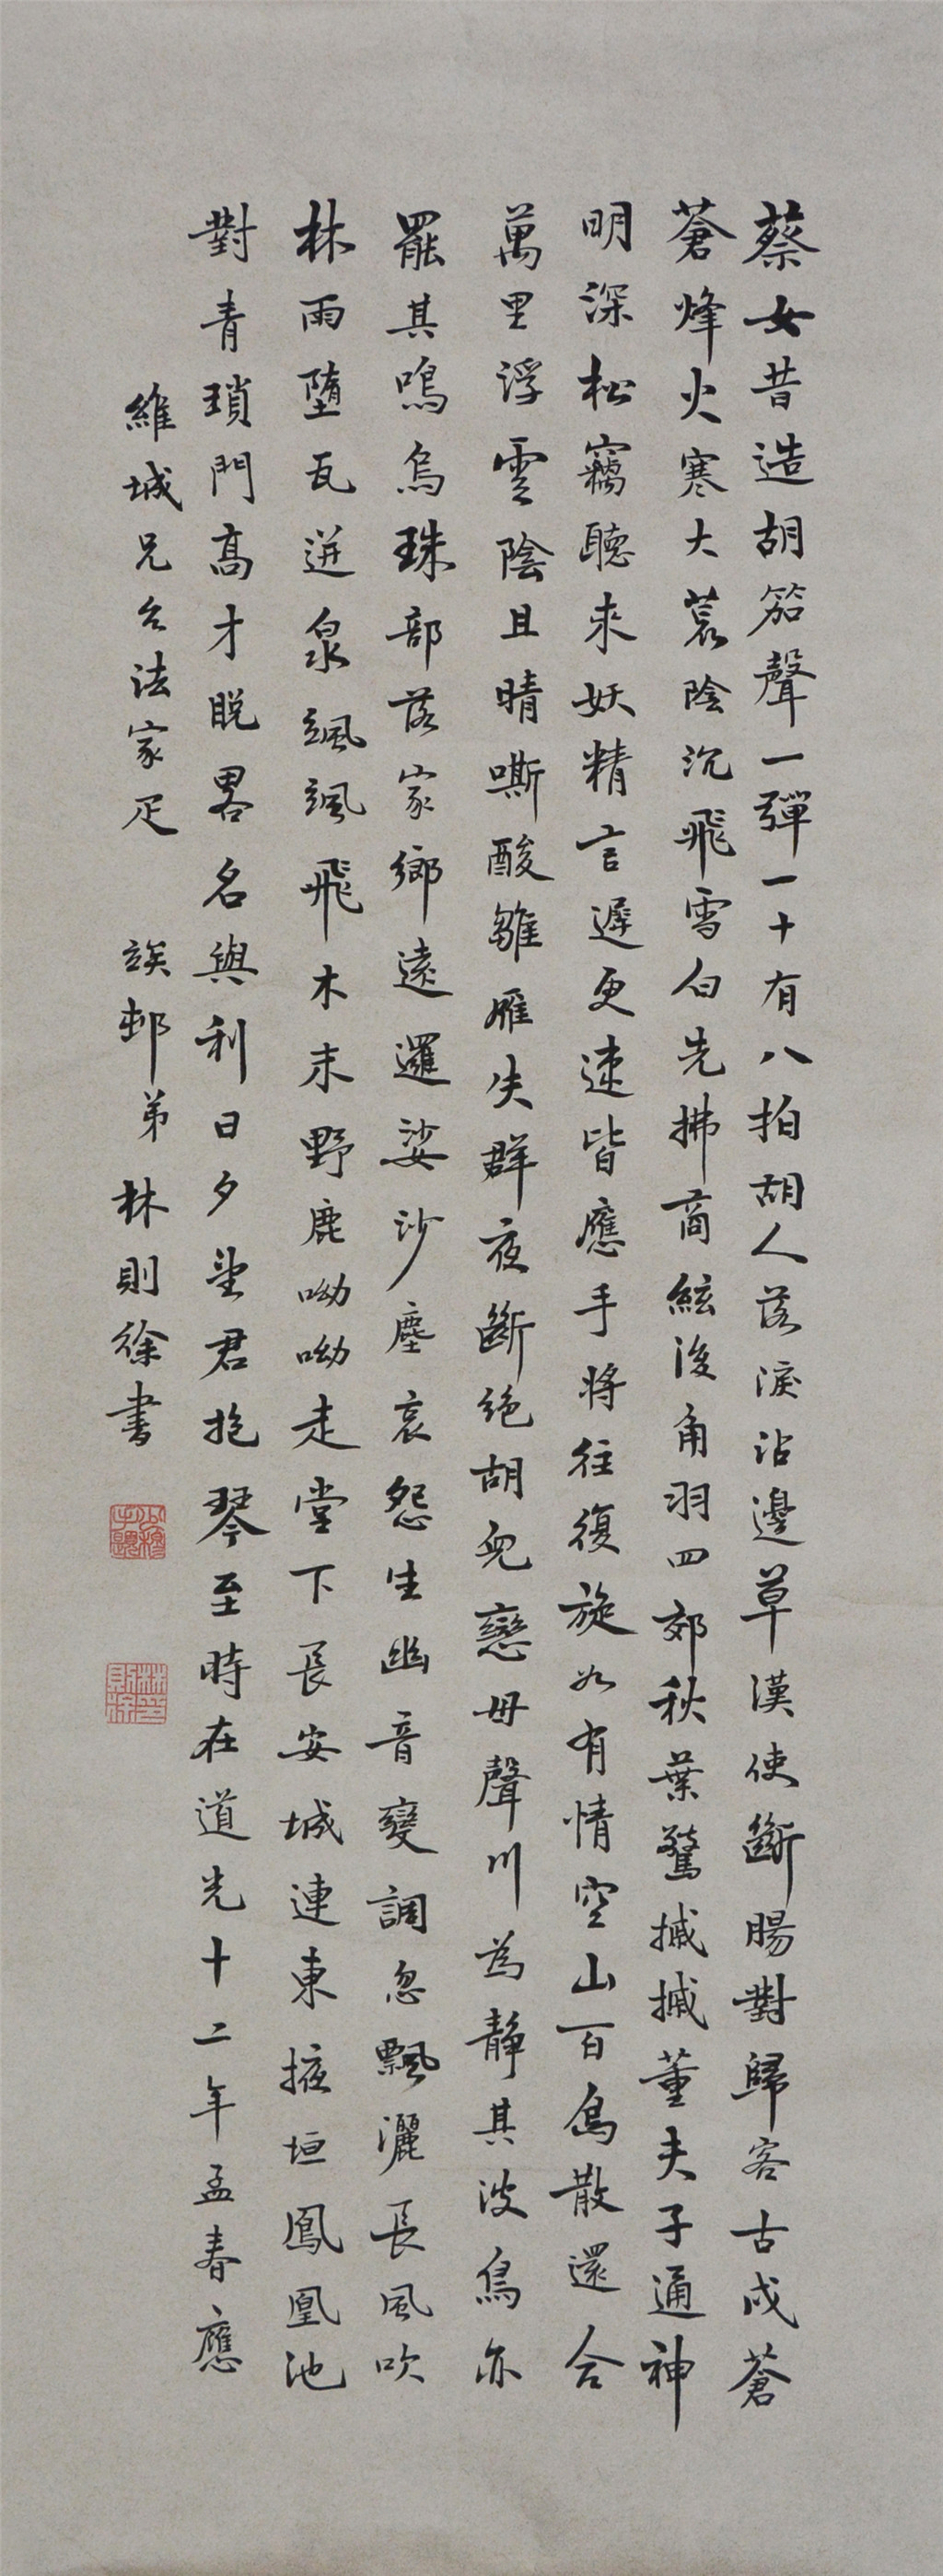 蔡女昔造胡笳聲一彈一十有八拍胡人落淚沾邊草漢使斷腸對歸客古戍蒼
蒼烽火寒大荒陰沉飛雪白先拂商絃後角羽四郊秋葉驚摵摵董夫子通神
明深松竊聽來妖精言遲更速皆應手將往復旋如有情空山百鳥散還合
萬里浮雲陰且晴嘶酸雛雁失群夜斷絕胡兒戀母聲川為靜其波鳥亦
罷其鳴烏珠部落家鄉遠邏娑沙塵哀怨生幽音變調忽飄灑長風吹
林雨墮瓦迸泉颯颯飛木末野鹿呦呦走堂下長安城連東掖垣鳳凰池
對青瑣門高才脫畧名與利日夕望君抱琴至時在道光十二年孟春應
維城兄台法家疋 竢邨弟 林則徐書
林則徐印